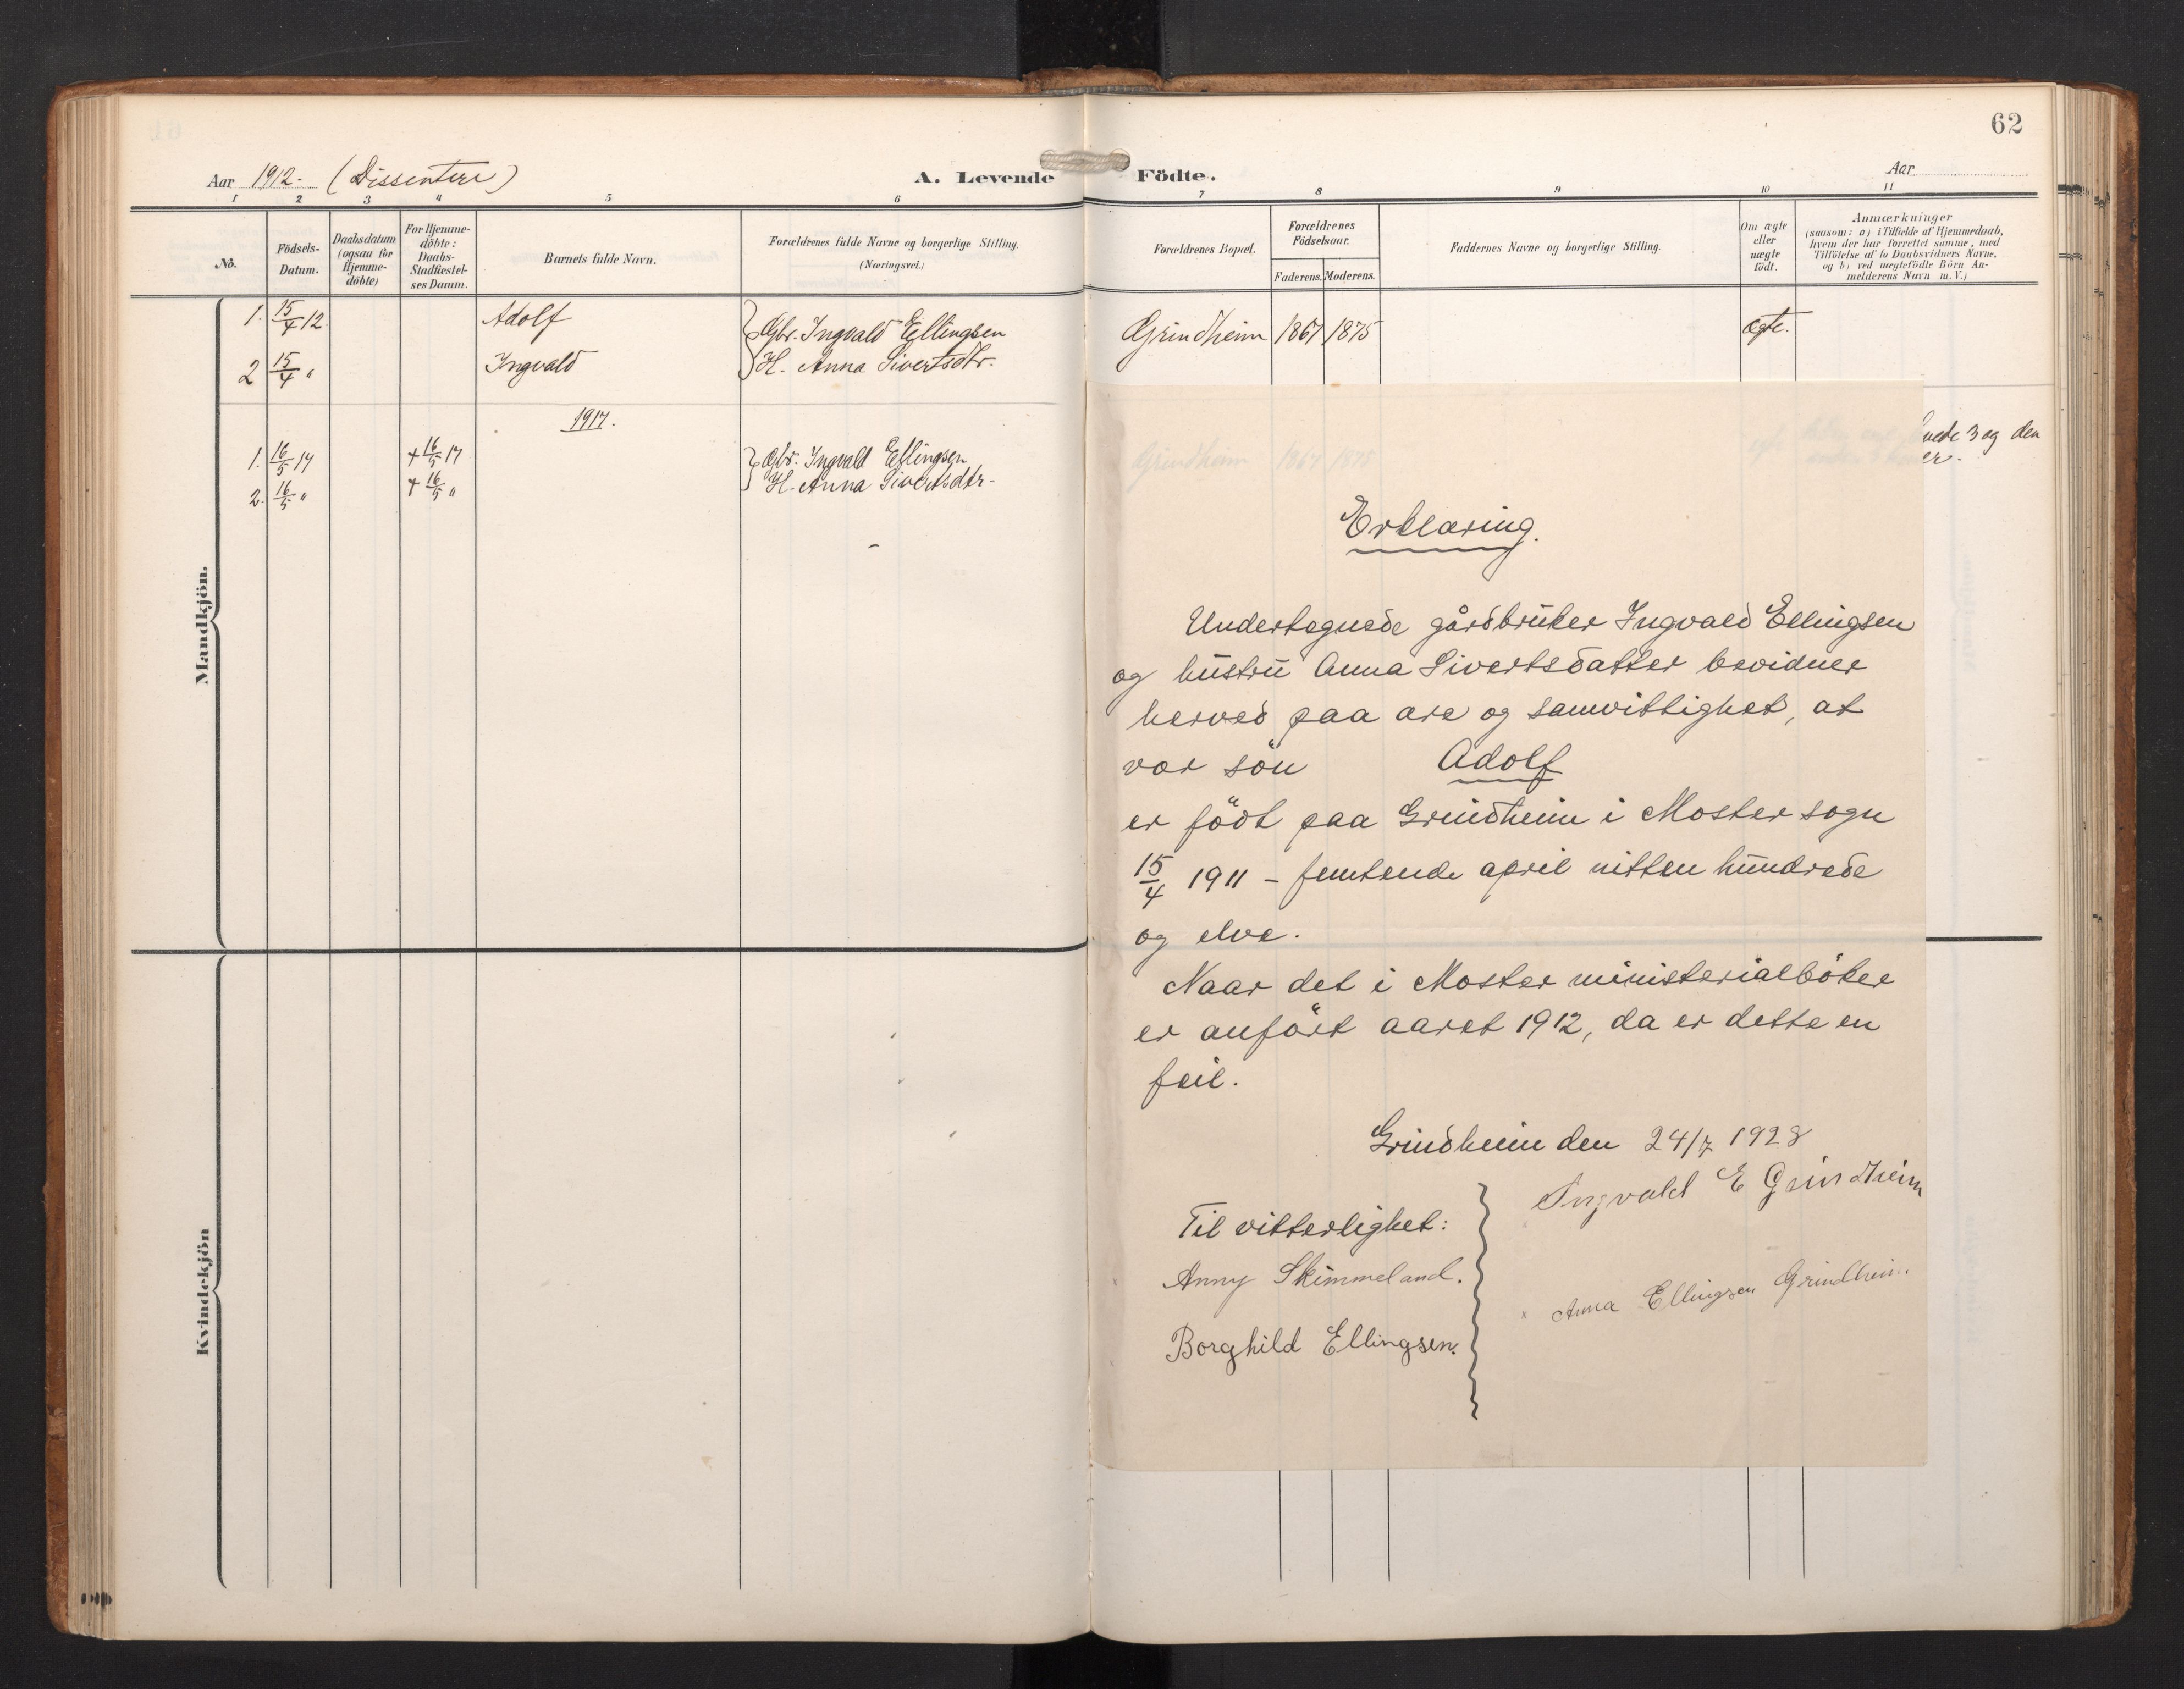 62
Aar 1912. (Dissentere)
A. Levende Födte.
Aar
1 2 3 4 5 6 7 8 9 10 11
No.
Födsels-
Datum.
Daabsdatum
(ogsaa for
Hjemme-
döbte)
For Hjemme-
döbte:
Daabs-
Stadfæstel-
ses Datum.
Barnets fulde Navn.
Forældrenes fulde Navne og borgerlige Stilling.
(Næringsvei.)
Forældrenes Bopæl.
Forældrenes
Födselsaar.
Faderens. Moderens.
Faddernes Navne og borgerlige Stilling.
Om ægte
eller
uægte
födt.
Anmærkninger
(saasom: a) i Tilfælde af Hjemmedaab,
hvem der har forrettet samme, med
Tilföielse af to Daabsvidners Navne.
og b) ved uægtefödte Börn An-
melderens Navn m. V.)
Mandkjön.
1. 15/4 12. Adolf Gbr. Ingvald Ellingsen Grindheim 1867 1875 ægte.
2 15/4 " Ingvald H. Anna Sivertsdtr.
1917.
1. 16/5 17 + 16/5 17 Gbr. Ingvald Ellingsen
2. 16/5 " + 16/5 " H. Anna Sivertsdtr.
3 og den
er.
Kvindekjön
Erklæring.
Undertegnede gårdbruker Ingvald Ellingsen
og hustru Anna Sivertsdatter bevidner
herved paa ære og samvittighet, at
vor sön Adolf
er födt paa Grindheim i Moster sogn
15/4 1911 – femtende april nitten hundrede
og elve.
Naar det i Moster ministerialböker
er anfört aaret 1912, da er dette en
feil.
Grindheim den 24/7 1928
Ingvald E Grindheim
Til vitterlighet:
Anny Skimmeland.
x Anna Ellingsen Grindheim.
Borghild Ellingsen.